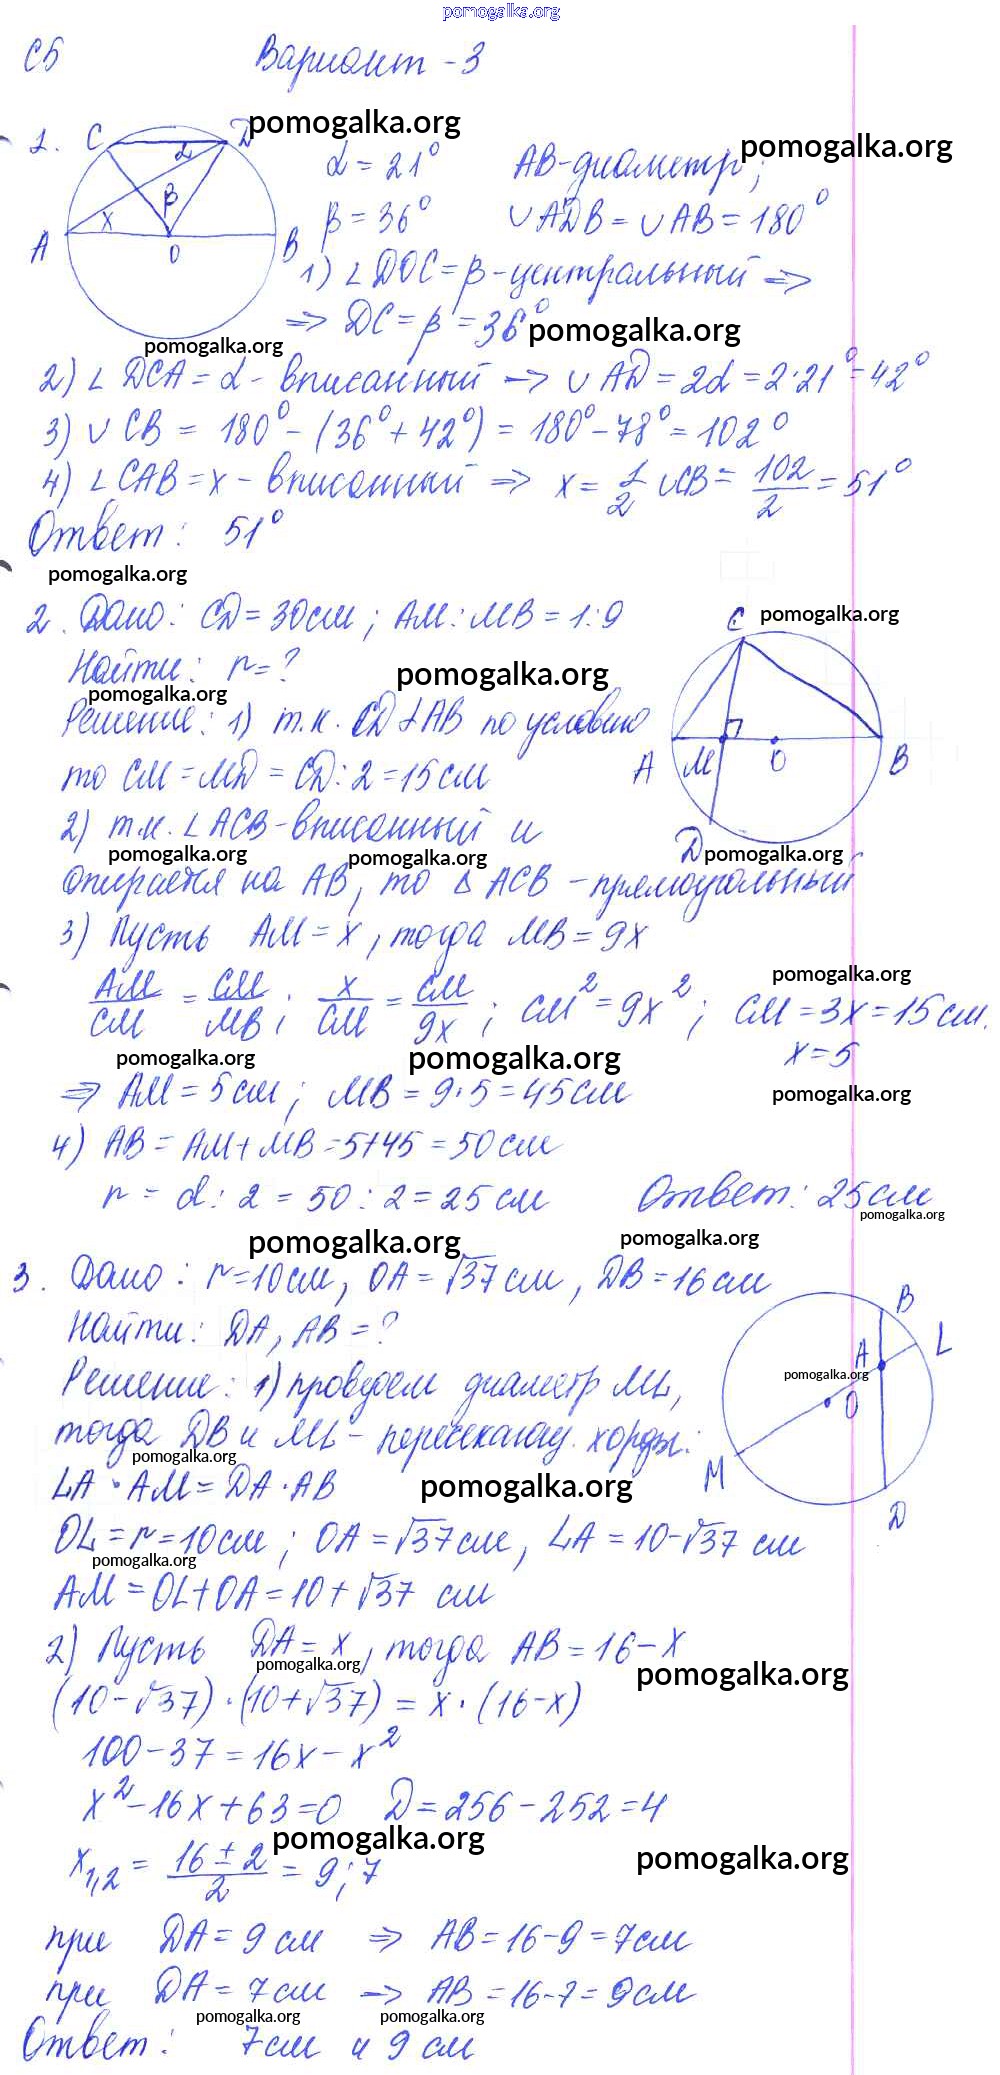 pomogalka.org
С5 Вариант - 3
1. C D pomogalka.org
α = 21° AB-диаметр; pomogalka.org
β = 36° ∪ADB = ∪AB = 180°
α β x A O B
1) ∠DOC = β - центральный ⇒
⇒ DC = β = 36° pomogalka.org
pomogalka.org
2) ∠DCA = α - вписанный → ∪AD = 2α = 2·21° = 42°
3) ∪CB = 180° - (36° + 42°) = 180° - 78° = 102°
4) ∠CAB = x - вписанный ⇒ x = 1/2 ∪CB = 102/2 = 51°
Ответ: 51°
pomogalka.org
2. Дано: CD = 30см; AM : MB = 1:9
C pomogalka.org
Найти: r = ? pomogalka.org
pomogalka.org
Решение: 1) т.к. CD ⊥ AB по условию
A M O B
то CM = MD = CD : 2 = 15 см
2) т.к. ∠ACB - вписанный и
D pomogalka.org
pomogalka.org pomogalka.org
опирается на AB, то △ ACB - прямоугольный
3) Пусть AM = x, тогда MB = 9x
pomogalka.org
AM/CM = CM/MB; x/CM = CM/9x; CM² = 9x²; CM = 3x = 15см.
x = 5
pomogalka.org pomogalka.org
pomogalka.org
⇒ AM = 5см; MB = 9·5 = 45см
4) AB = AM + MB = 5+45 = 50 см
r = d : 2 = 50 : 2 = 25 см Ответ: 25см
pomogalka.org
pomogalka.org pomogalka.org
3. Дано: r = 10см, OA = √37 см, DB = 16 см
Найти: DA, AB = ?
B L A O M D
pomogalka.org
Решение: 1) проведем диаметр ML,
тогда DB и ML - пересекающ. хорды:
pomogalka.org
LA · AM = DA · AB pomogalka.org
OL = r = 10см; OA = √37 см, LA = 10-√37 см
pomogalka.org
AM = OL + OA = 10 + √37 см
2) Пусть DA = x, тогда AB = 16 - x
pomogalka.org pomogalka.org
(10 - √37) · (10 + √37) = x · (16 - x)
100 - 37 = 16x - x²
x² - 16x + 63 = 0 D = 256 - 252 = 4
pomogalka.org pomogalka.org
x₁,₂ = (16 ± 2)/2 = 9; 7
при DA = 9 см ⇒ AB = 16-9 = 7см
при DA = 7см → AB = 16-7 = 9см
pomogalka.org pomogalka.org
Ответ: 7см и 9 см